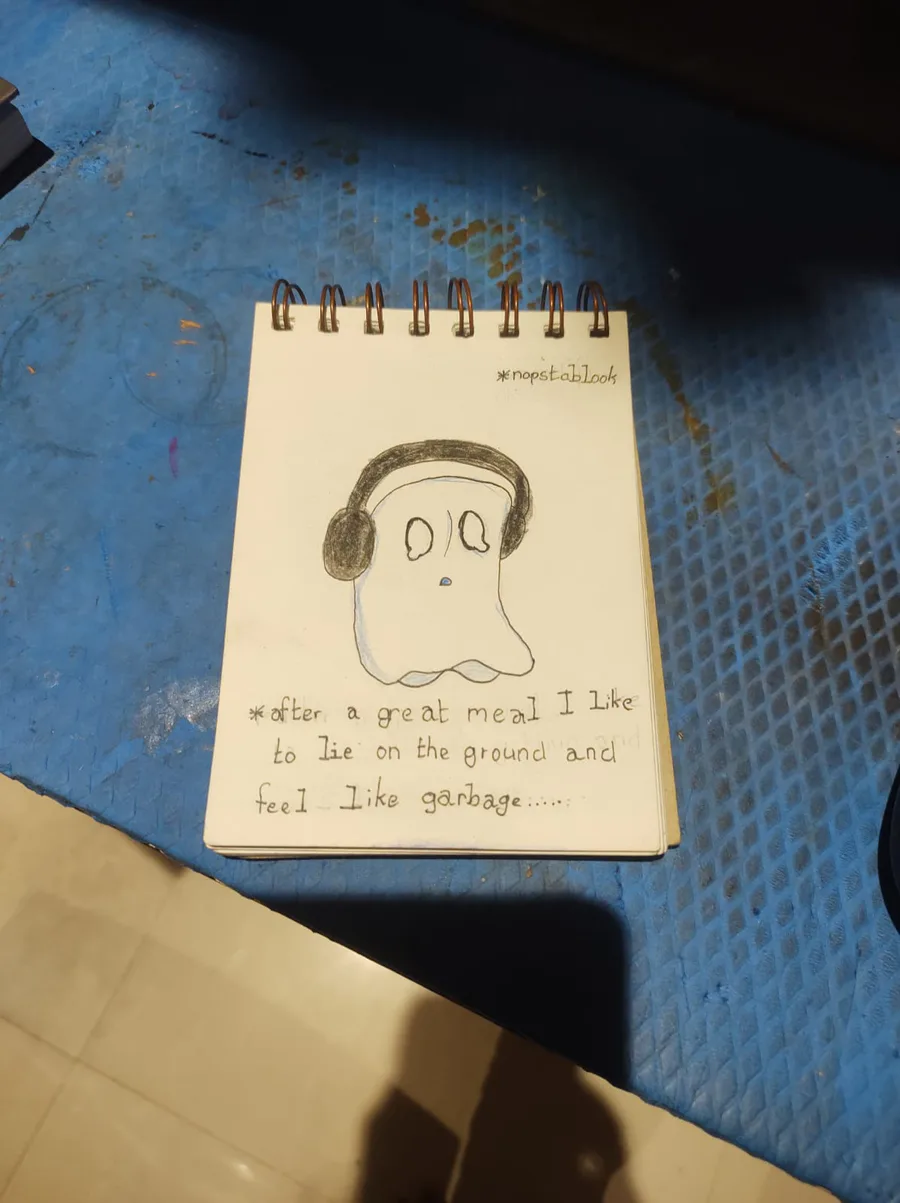 *nopstablook
*after a great meal I like
to lie on the ground and
feel like garbage......